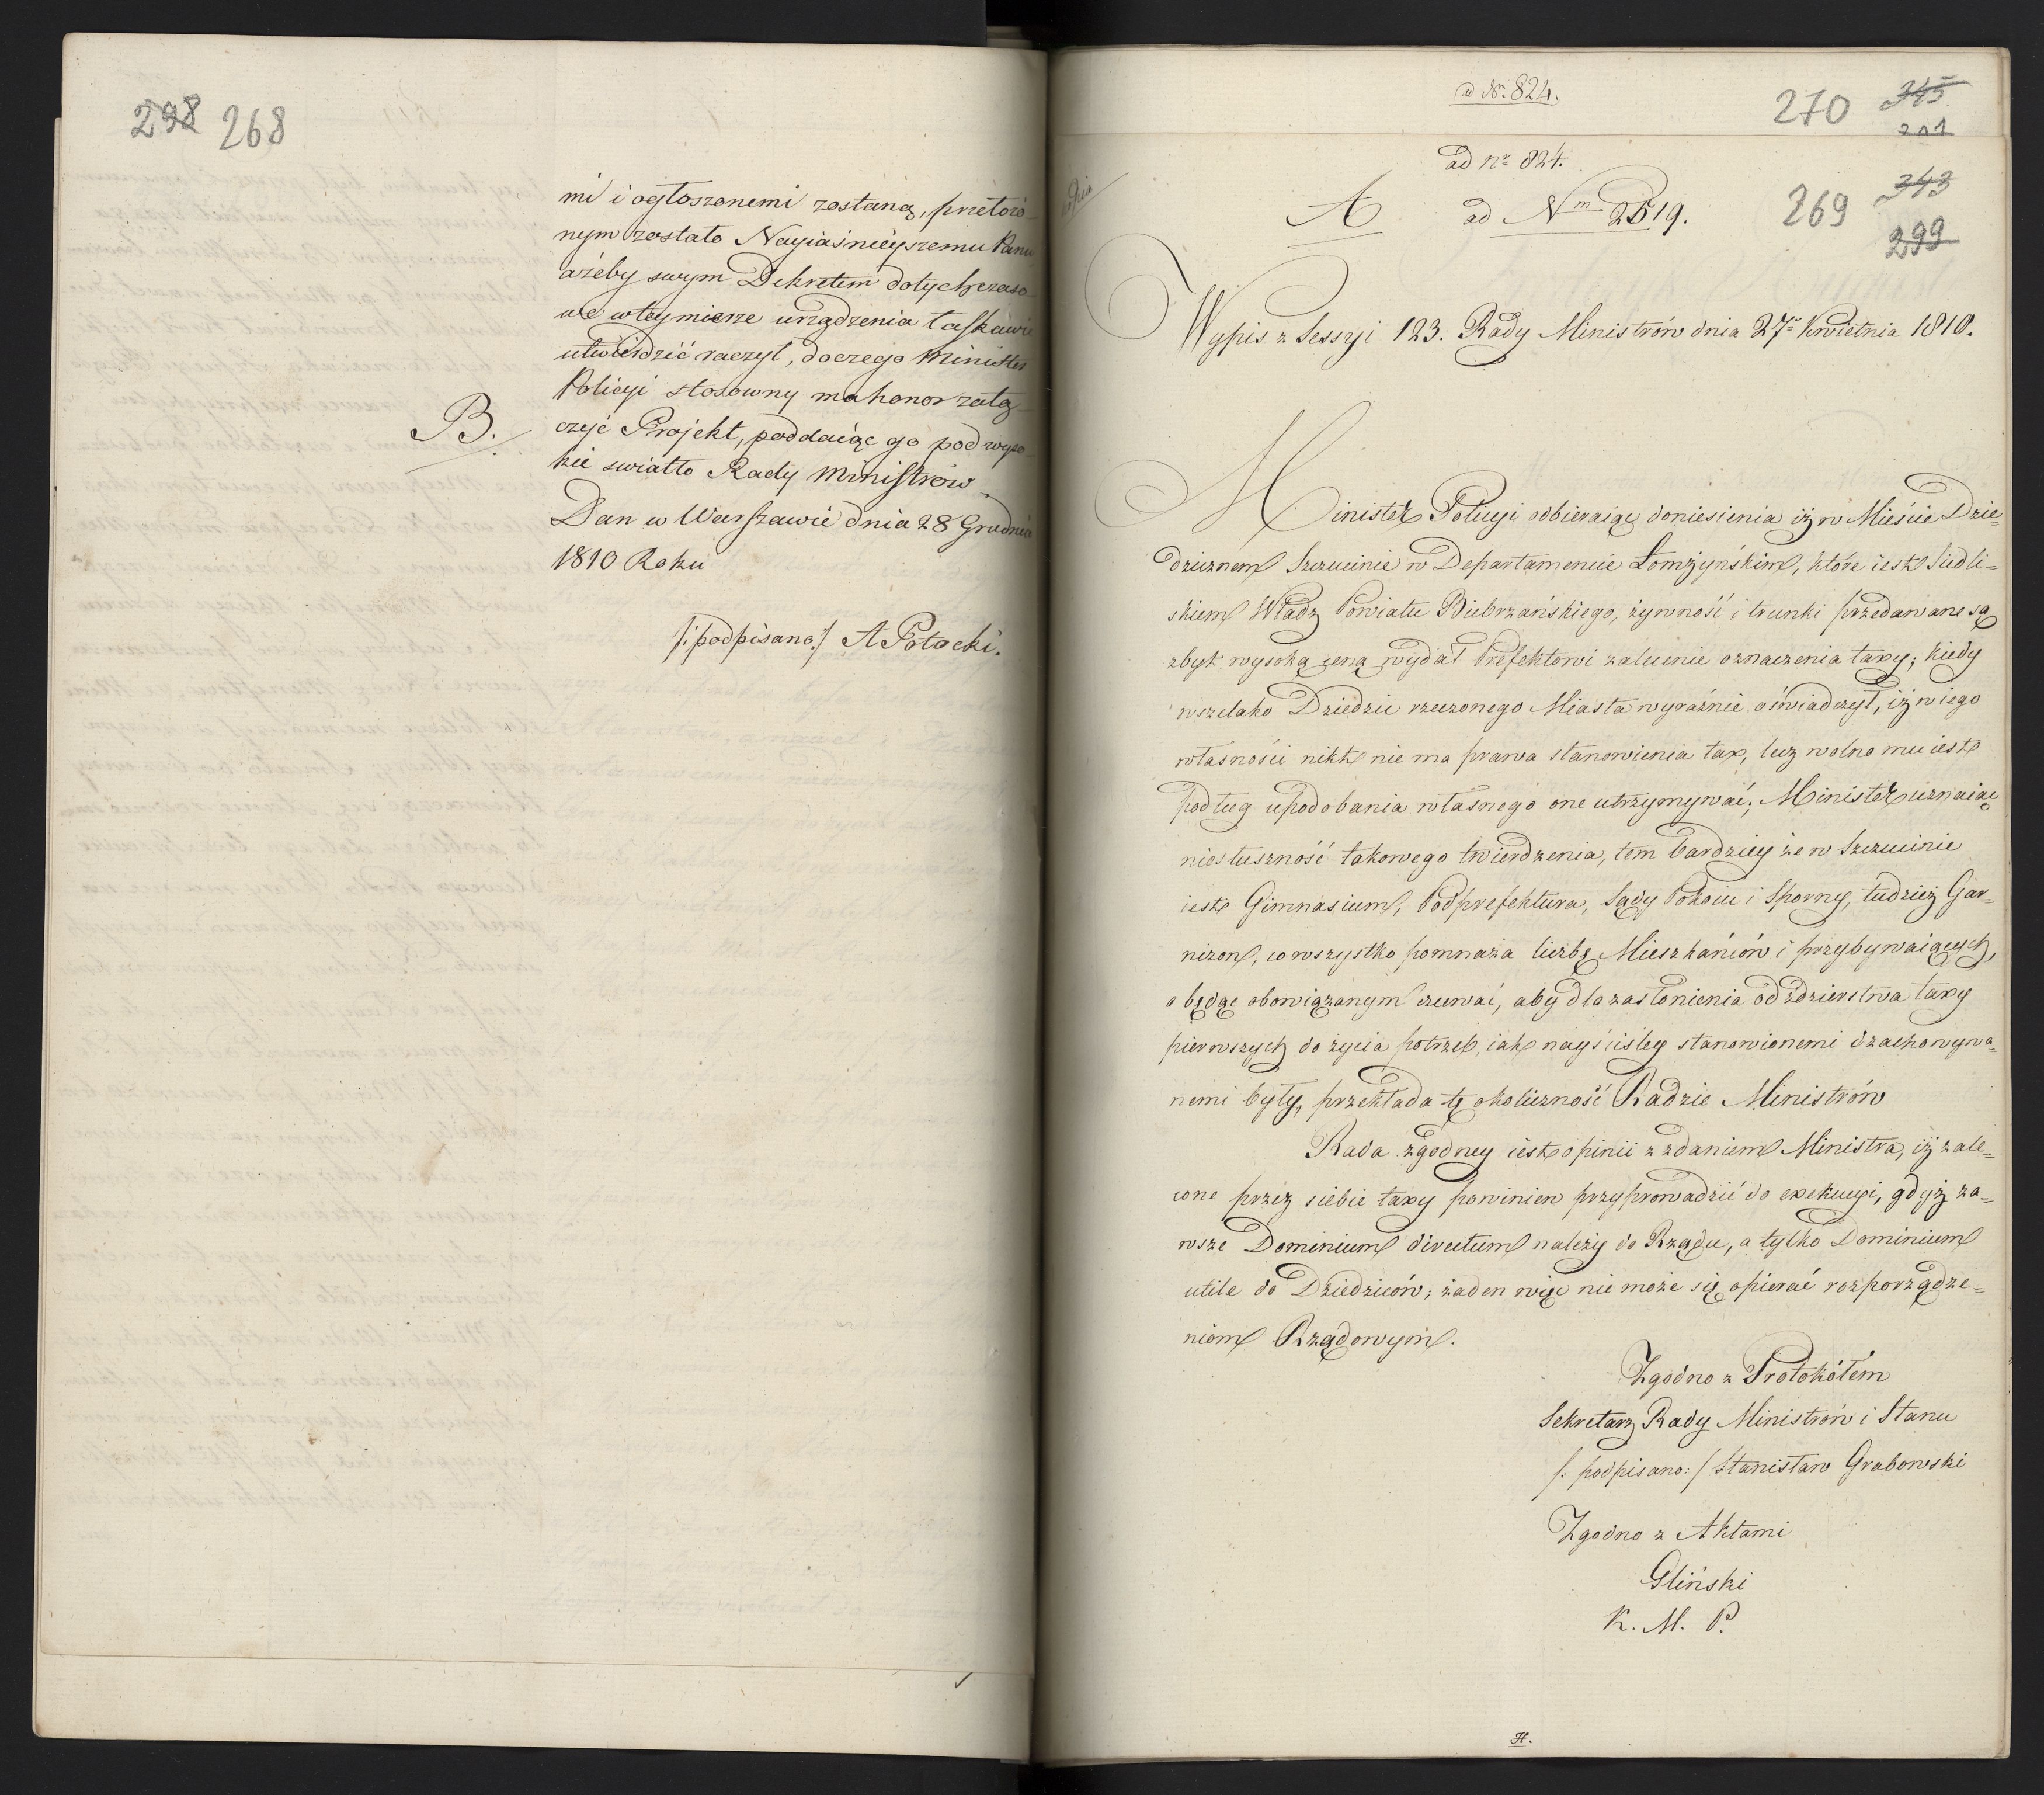 298 268
mi i ogłoszonemi zostaną, przełożo-
nym zostało Nayiaśnieyszemu Panu
ażeby swym Dekretem dotychczaso-
we w tey mierze urządzenia łaskawie
utwierdzić raczył, do czego Minister
Policyi stosowny ma honor załą-
B.
czyć Projekt, poddaiąc go pod wyso-
kie swiatło Rady Ministrów.
Dan w Warszawie dnia 28 Grudnia
1810 Roku
/:podpisano:/ A Potocki.
ad Nr. 824.
270 345
ad nr 824.
A ad Nm 2519.
269 343
299
Wypis z Sessyi 123. Rady Ministrów dnia 27o Kwietnia 1810.
Minister Policyi odbieraiąc doniesienia iż w Mieście Dzie=
dzicznem Szczucinie w Departamencie Łomżyńskim, które iest Siedli=
skiem Władz Powiatu Biebrzańskiego, żywność i trunki przedawane są
zbyt wysoką ceną wydał Prefektowi zalecenie oznaczenia taxy; kiedy
wszelako Dziedzic rzeczonego Miasta wyraźnie oświadczył, iż w iego
własności nikt nie ma prawa stanowienia tax, lecz wolno mu iest
podług upodobania własnego one utrzymywać; Minister uznaiąc
niesłuszność takowego twierdzenia, tem bardziey że w Szczucinie
iest Gimnasium, Podprefektura, Sądy Pokoiu i Sporny, tudzież Gar=
nizon, co wszystko pomnaża liczbę Mieszkańców i przybywaiących,
a będąc obowiązanym czuwać, aby dla zasłonienia od zdzierstwa taxy
pierwszych do życia potrzeb, iak nayściśley stanowionemi i zachowywa=
nemi były, przekłada tę okoliczność Radzie Ministrów
Rada zgodney iest opinii z zdaniem Ministra, iż zale=
cone przez siebie taxy powinien przyprowadzić do exekucyi, gdyż za=
wsze Dominium directum należy do Rządu, a tylko Dominium
utile do Dziedziców; żaden więc nie może się opierać rozporządze=
niom Rządowym.
Zgodno z Protokółem
Sekretarz Rady Ministrów i Stanu
/: podpisano: / Stanisław Grabowski
Zgodno z Aktami
Gliński
K. M. P.
H.